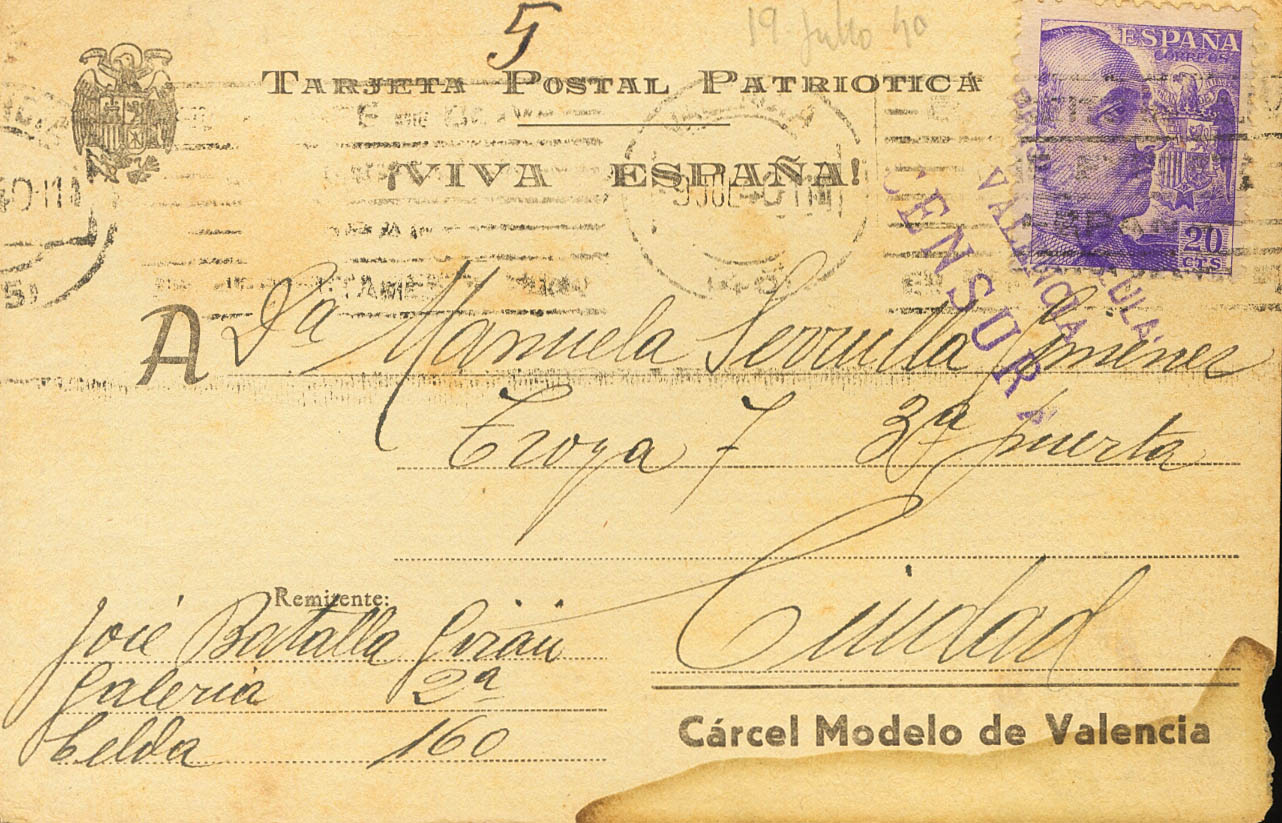 5
19 Julio 40
TARJETA POSTAL PATRIOTICÁ
¡VIVA ESPAÑA!
ESPAÑA
CORREOS
20
CTS
CENSURA
VALENCIA
A Dª Manuela Serrulla Gimenez
Troya 7 3ª puerta
Ciudad
Remitente:
José Batalla
Galeria 2ª
Celda 160
Cárcel Modelo de Valencia